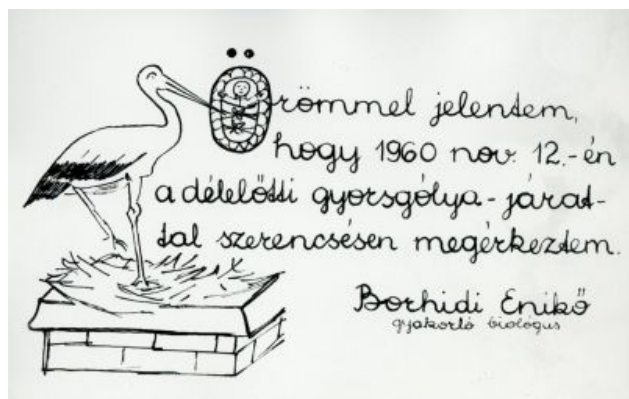 Örömmel jelentem,
hogy 1960 nov. 12.-én
a délelőtti gyorsgólya-járat-
tal szerencsésen megérkeztem.
Borhidi Enikő
gyakorló biológus